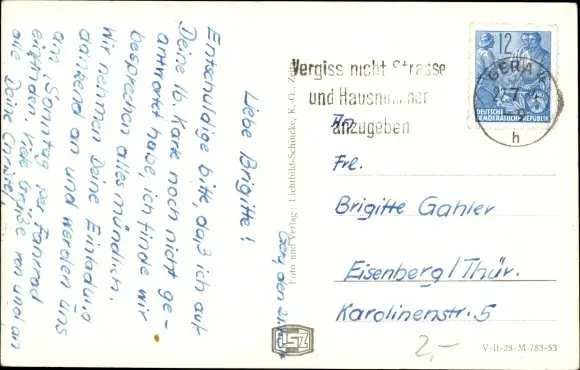 Liebe Brigitte!
Entschuldige bitte, daß ich auf
Deine lb. Karte noch nicht ge-
antwortet habe, ich finde wir
besprechen alles mündlich.
Wir nehmen Deine Einladung
dankend an und werden uns
am Sonntag per Fahrrad
einfinden. Viele Grüße von und an
alle Deine Christel
Gera, den 21.
Foto und Verlag: Lichtbild-Schincke, K.-G., Zeitz
Vergiss nicht Strasse
und Hausnummer
anzugeben
12
DEUTSCHE
DEMOKRATISCHE REPUBLIK
GERA
h
An
Frl.
Brigitte Gahler
Eisenberg/Thür.
Karolinenstr. 5
2,-
V-11-28-M 783-53